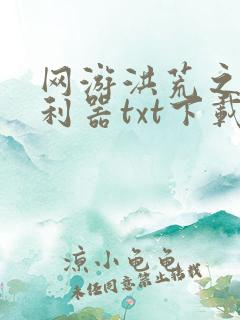 网游洪荒之
利器txt下载
凉小龟龟
未经同意禁止转载